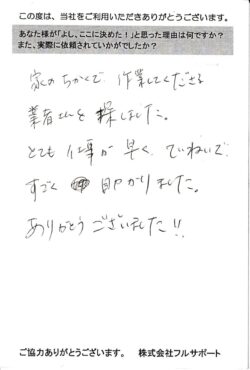 この度は、当社をご利用いただきありがとうございます。
あなた様が「よし、ここに決めた!」と思った理由は何ですか?
また、実際に依頼されていかがでしたか?
家のちかくで 作業してくださる
業者さんを 探しました。
とても 仕事が 早く ていねいで
すごく 助かりました。
ありがとうございました!!
ご協力ありがとうございます。 株式会社フルサポート